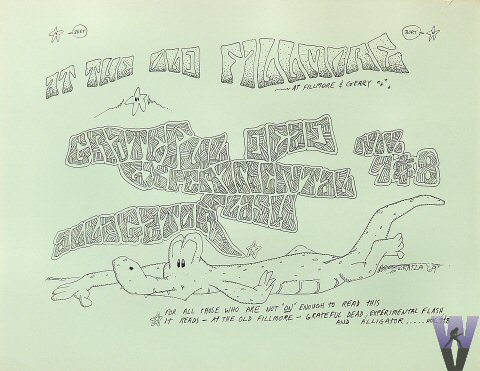 AT THE OLD FILLMORE
AT FILLMORE & GEARY
GRATEFUL DEAD
EXPERIMENTAL
FLASH
ALLIGATOR
NOV. 7&8
FOR ALL THOSE WHO ARE NOT "ON" ENOUGH TO READ THIS
IT READS — AT THE OLD FILLMORE — GRATEFUL DEAD, EXPERIMENTAL FLASH,
AND ALLIGATOR ..... NOV. 7&8
W